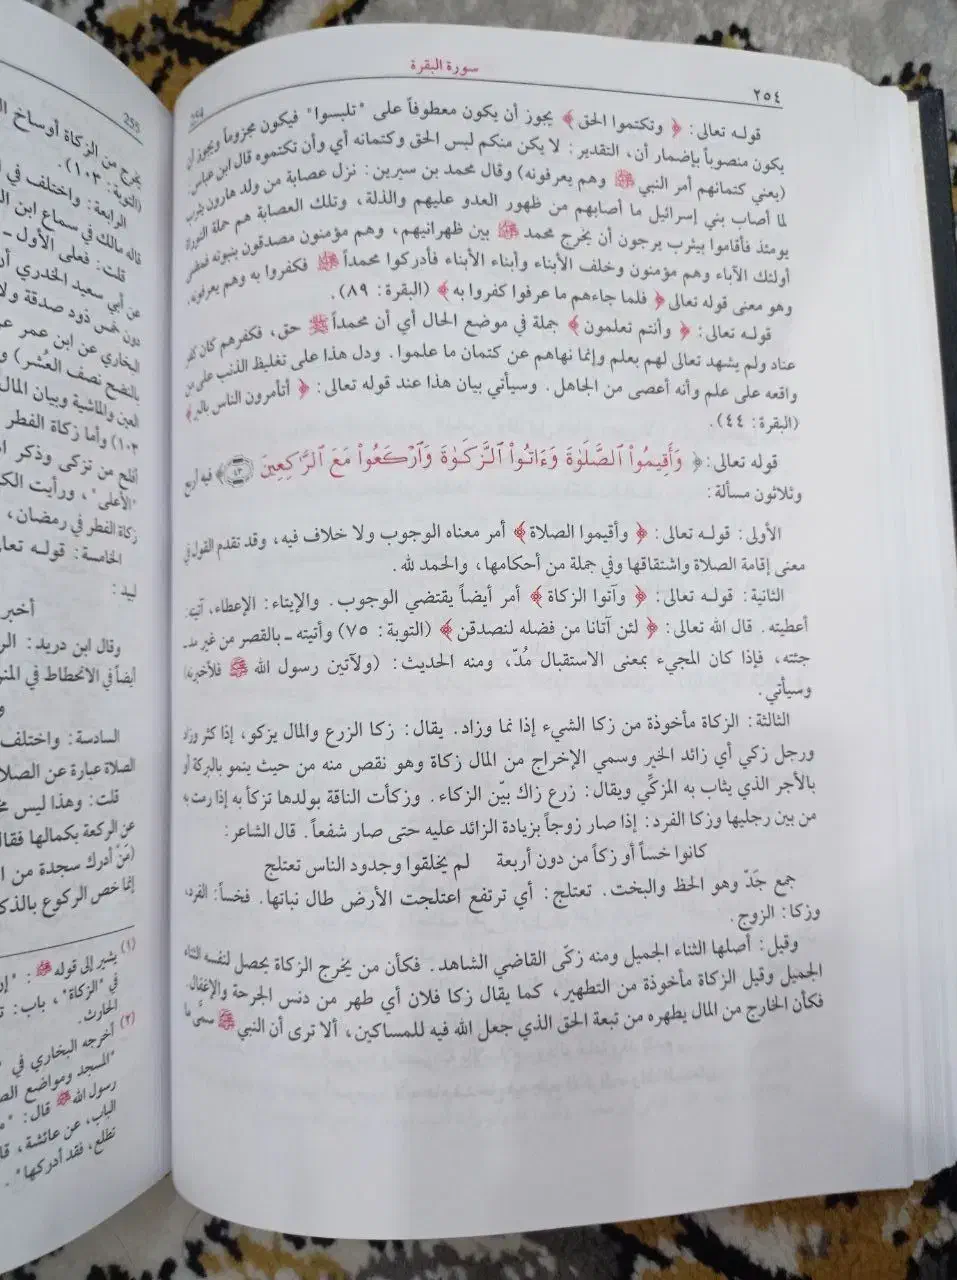 ٢٥٤
سورة البقرة
254
قوله تعالى: ﴿ وتكتموا الحق ﴾ يجوز أن يكون معطوفاً على "تلبسوا" فيكون مجزوماً ويجوز أن
يكون منصوباً بإضمار أن، التقدير: لا يكن منكم لبس الحق وكتمانه أي وأن تكتموه قال ابن عباس:
(يعني كتمانهم أمر النبي ﷺ وهم يعرفونه) وقال محمد بن سيرين: نزل عصابة من ولد هارون يثرب
لما أصاب بني إسرائيل ما أصابهم من ظهور العدو عليهم والذلة، وتلك العصابة هم حملة التوراة
يومئذ فأقاموا بيثرب يرجون أن يخرج محمد ﷺ بين ظهرانيهم، وهم مؤمنون مصدقون بنبوته فمضى
أولئك الآباء وهم مؤمنون وخلف الأبناء وأبناء الأبناء فأدركوا محمداً ﷺ فكفروا به وهم يعرفونه،
وهو معنى قوله تعالى ﴿ فلما جاءهم ما عرفوا كفروا به ﴾ (البقرة: ٨٩).
قوله تعالى: ﴿ وأنتم تعلمون ﴾ جملة في موضع الحال أي أن محمداً ﷺ حق، فكفرهم كان كفر
عناد ولم يشهد تعالى لهم بعلم وإنما نهاهم عن كتمان ما علموا. ودل هذا على تغليظ الذنب على من
واقعه على علم وأنه أعصى من الجاهل. وسيأتي بيان هذا عند قوله تعالى: ﴿ أتأمرون الناس بالبر ﴾
(البقرة: ٤٤).
قوله تعالى: ﴿ وَأَقِيمُوا۟ ٱلصَّلَوٰةَ وَءَاتُوا۟ ٱلزَّكَوٰةَ وَٱرْكَعُوا۟ مَعَ ٱلرَّٰكِعِينَ ٤٣ ﴾ فيه أربع
وثلاثون مسألة:
الأولى: قوله تعالى: ﴿ وأقيموا الصلاة ﴾ أمر معناه الوجوب ولا خلاف فيه، وقد تقدم القول في
معنى إقامة الصلاة واشتقاقها وفي جملة من أحكامها، والحمد لله.
الثانية: قوله تعالى: ﴿ وآتوا الزكاة ﴾ أمر أيضاً يقتضي الوجوب. والإيتاء: الإعطاء، آتيته:
أعطيته. قال الله تعالى: ﴿ لئن آتانا من فضله لنصدقن ﴾ (التوبة: ٧٥) وأتيته ـ بالقصر من غير مد ـ
جئته، فإذا كان المجيء بمعنى الاستقبال مُدّ، ومنه الحديث: (ولآتين رسول الله ﷺ فلأخبرنه)
وسيأتي.
الثالثة: الزكاة مأخوذة من زكا الشيء إذا نما وزاد. يقال: زكا الزرع والمال يزكو، إذا كثر وزاد
ورجل زكي أي زائد الخير وسمي الإخراج من المال زكاة وهو نقص منه من حيث ينمو بالبركة أو
بالأجر الذي يثاب به المزكِّي ويقال: زرع زاك بيّن الزكاء. وزكأت الناقة بولدها تزكأ به إذا رمت به
من بين رجليها وزكا الفرد: إذا صار زوجاً بزيادة الزائد عليه حتى صار شفعاً. قال الشاعر:
كانوا خساً أو زكاً من دون أربعة لم يخلقوا وجدود الناس تعتلج
جمع جَدّ وهو الحظ والبخت. تعتلج: أي ترتفع اعتلجت الأرض طال نباتها. فخساً: الفرد،
وزكا: الزوج.
وقيل: أصلها الثناء الجميل ومنه زكّى القاضي الشاهد. فكأن من يخرج الزكاة يحصل لنفسه الثناء
الجميل وقيل الزكاة مأخوذة من التطهير، كما يقال زكا فلان أي طهر من دنس الجرحة والإغفال.
فكأن الخارج من المال يطهره من تبعة الحق الذي جعل الله فيه للمساكين، ألا ترى أن النبي ﷺ سمَّى ما
255
يخرج من الزكاة أوساخ
(التوبة: ١٠٣).
الرابعة: واختلف في
قاله مالك في سماع ابن
قلت: فعلى الأول ـ
عن أبي سعيد الخدري أن
دون خمس ذود صدقة ولا
البخاري عن ابن عمر
بالنضح نصف العُشر)
العين والماشية وبيان المال
١٠٣) وأما زكاة الفطر
أفلح من تزكى وذكر
"الأعلى"، ورأيت
زكاة الفطر في رمضان،
الخامسة: قوله
لبيد:
أخبر
وقال ابن دريد:
أيضاً في الانحطاط في
السادسة: واختلف
الصلاة عبارة عن
قلت: وهذا ليس
عن الركعة بكمالها
(مَنْ أدرك سجدة من
إنما خص الركوع
(١) يشير إلى قوله ﷺ:
في "الزكاة"، باب:
الحارث.
(٢) أخرجه البخاري في
"المسجد ومواضع
رسول الله ﷺ قال:
الباب، عن عائشة،
تطلع، فقد أدركها".